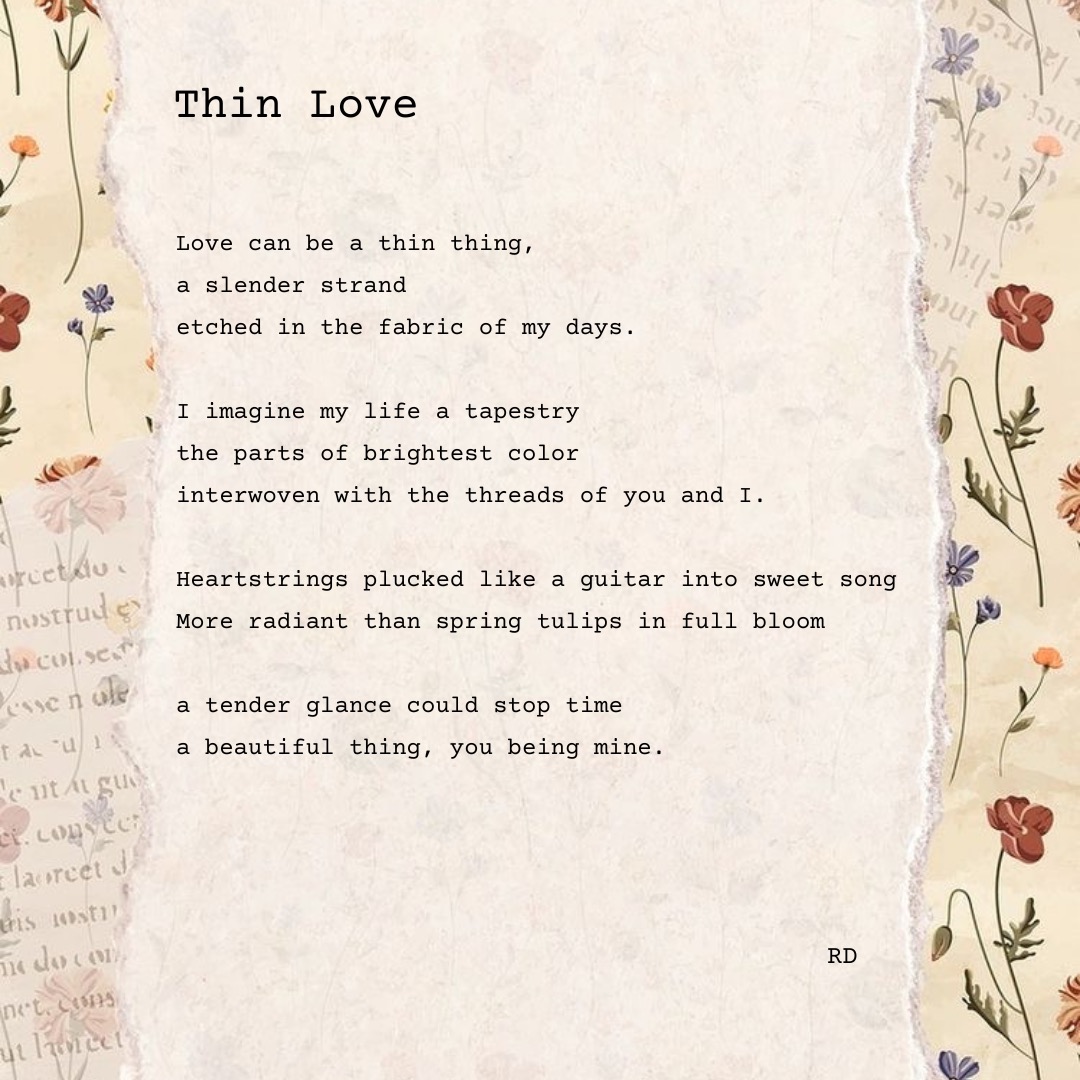 Thin Love
Love can be a thin thing,
a slender strand
etched in the fabric of my days.
I imagine my life a tapestry
the parts of brightest color
interwoven with the threads of you and I.
Heartstrings plucked like a guitar into sweet song
More radiant than spring tulips in full bloom
a tender glance could stop time
a beautiful thing, you being mine.
RD
nostrud